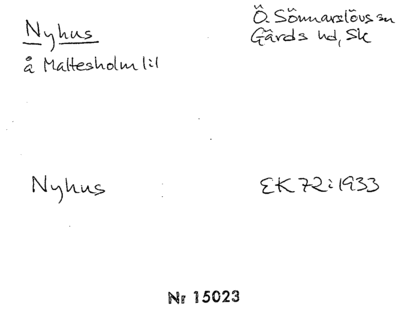 Nyhus
Ö. Sönnarslövs sn
å Maltesholm 1:1
Gärds hd, Sk
Nyhus
EK 72:1933
Nr 15023